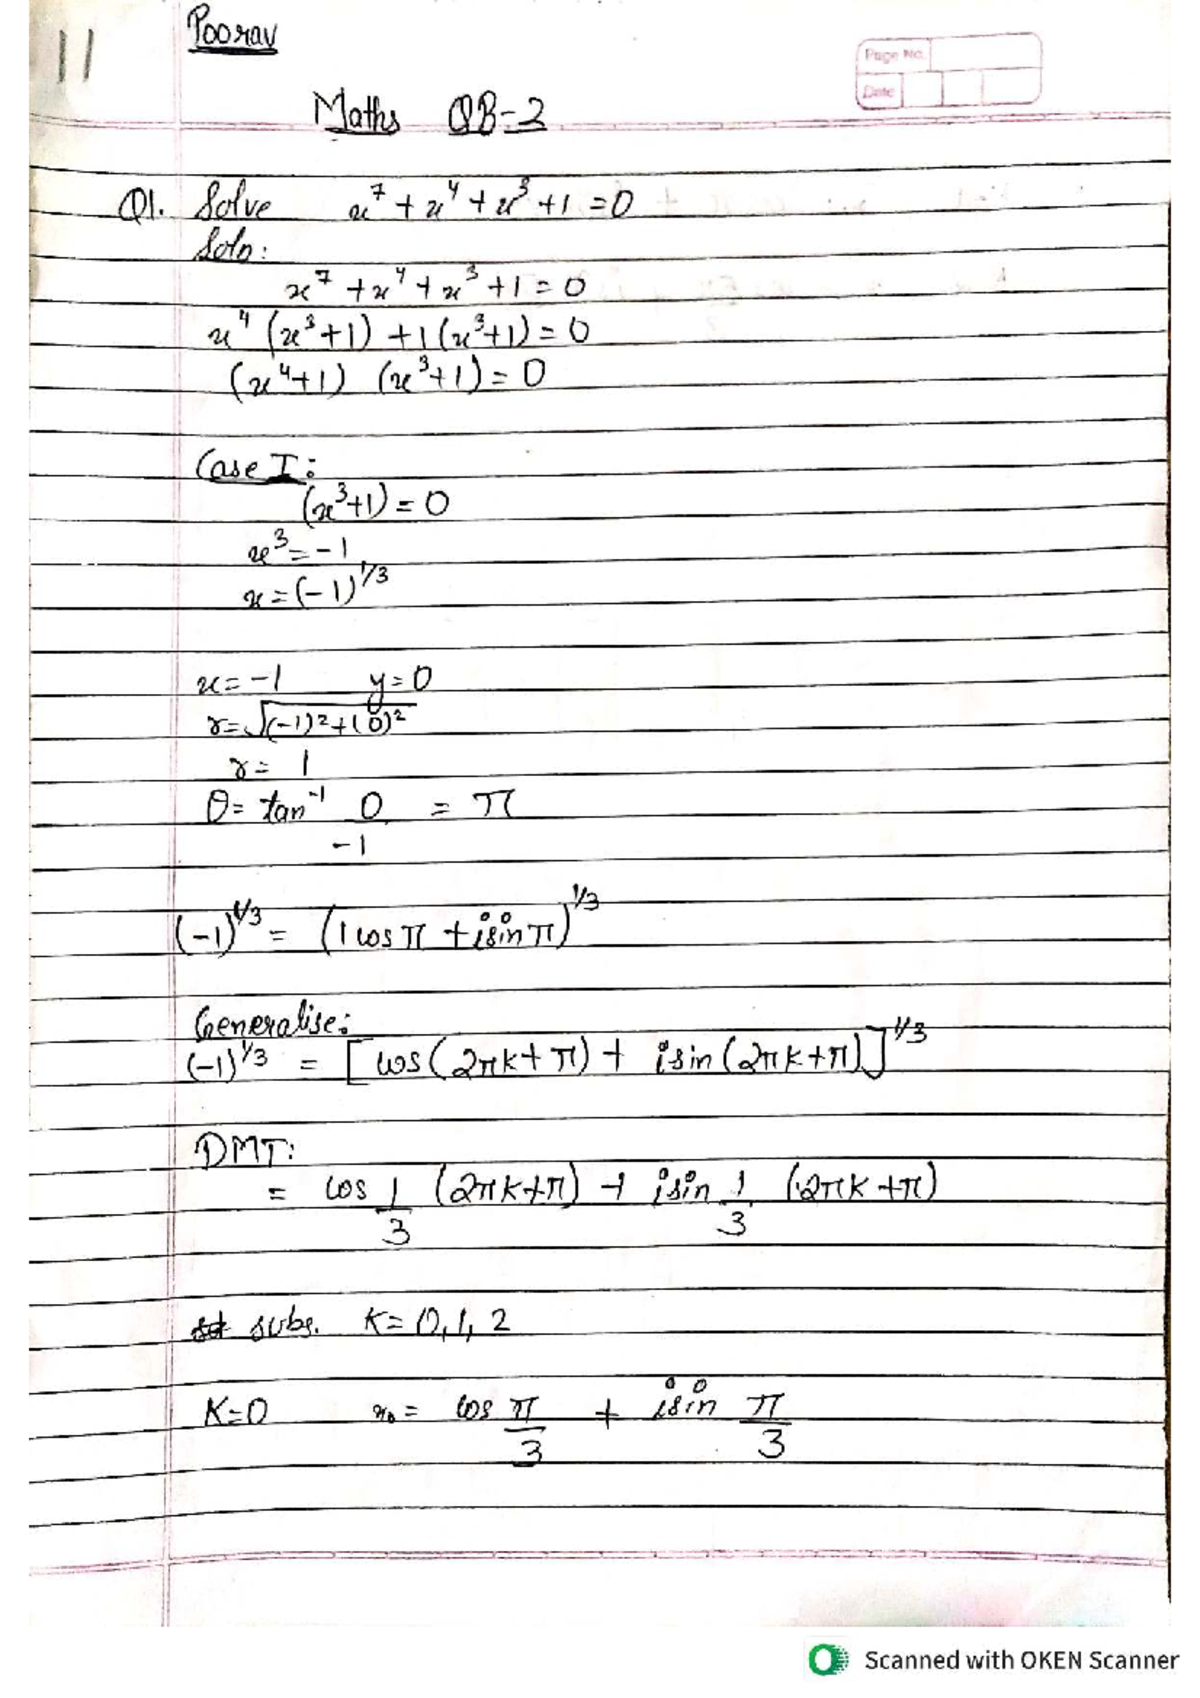 11
Poorav
Page No.
Date
Maths QB-2
Q1. Solve x⁷ + x⁴ + x³ + 1 = 0
Soln:
x⁷ + x⁴ + x³ + 1 = 0
x⁴ (x³+1) + 1 (x³+1) = 0
(x⁴+1) (x³+1) = 0
Case I:
(x³+1) = 0
x³ = -1
x = (-1)^1/3
x = -1 y = 0
r = √(-1)² + (0)²
r = 1
θ = tan⁻¹ 0/-1 = π
(-1)^1/3 = (1 cos π + i sin π)^1/3
Generalise:
(-1)^1/3 = [cos (2πk + π) + i sin (2πk + π)]^1/3
DMT:
= cos 1/3 (2πk + π) + i sin 1/3 (2πk + π)
subs. K = 0, 1, 2
K=0 x₀ = cos π/3 + i sin π/3
Scanned with OKEN Scanner